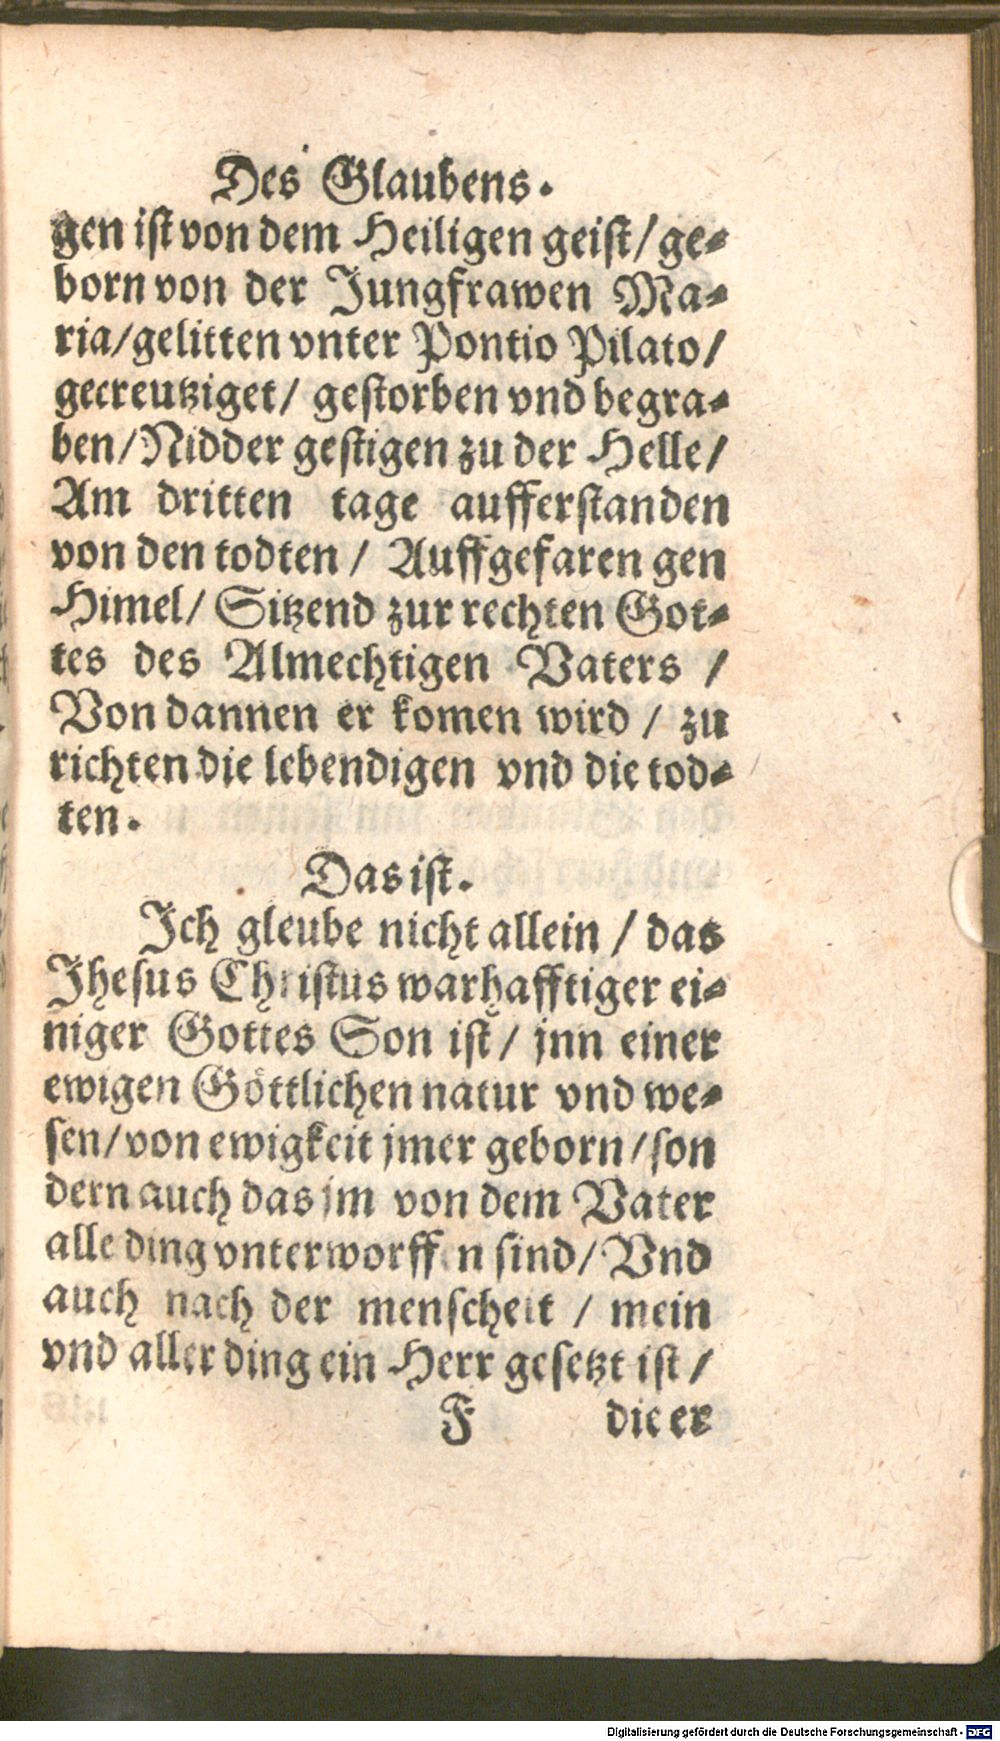 Des Glaubens.
gen ist von dem Heiligen geist/ ge⸗
born von der Jungfrawen Ma⸗
ria/ gelitten vnter Pontio Pilato/
gecreutziget/ gestorben vnd begra⸗
ben/ Nidder gestigen zu der Helle/
Am dritten tage aufferstanden
von den todten / Auffgefaren gen
Himel/ Sitzend zur rechten Got⸗
tes des Almechtigen Vaters /
Von dannen er komen wird / zu
richten die lebendigen vnd die tod⸗
ten.
Das ist.
Ich gleube nicht allein / das
Jhesus Christus warhafftiger ei⸗
niger Gottes Son ist/ jnn einer
ewigen Göttlichen natur vnd we⸗
sen/ von ewigkeit jmer geborn/ son
dern auch das jm von dem Vater
alle ding vnterworffen sind/ Vnd
auch nach der menscheit / mein
vnd aller ding ein Herr gesetzt ist /
F die er
Digitalisierung gefördert durch die Deutsche Forschungsgemeinschaft - DFG